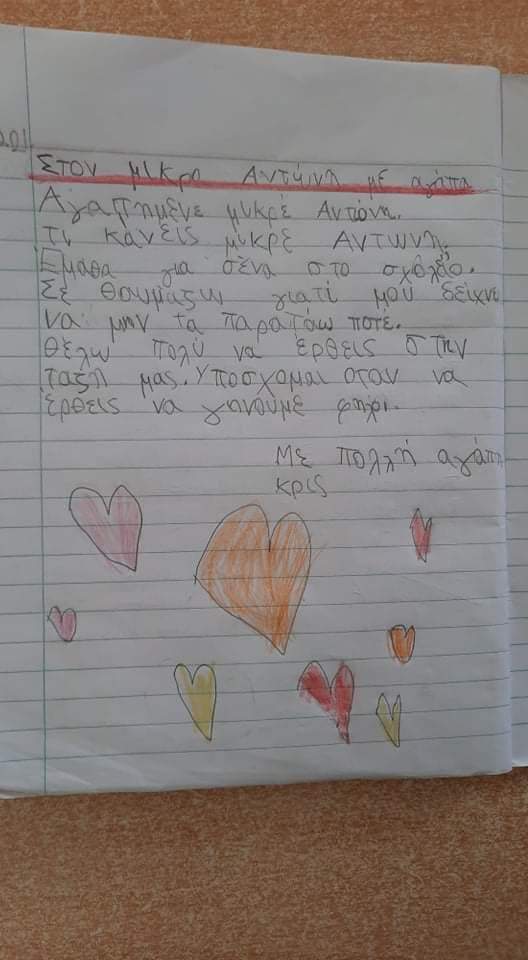 201
Στον μικρο Αντώνη με αγάπα
Αγαπημένε μικρέ Αντώνη.
τι κάνεις μικρέ Αντωνη.
Εμαθα για σένα στο σχολείο.
Σε θαυμάζω γιατί μού δείχνε
να μην τα παρατάω ποτέ.
θέλω πολύ να έρθεις στην
ταξη μας. Υποσχομαι οταν να
έρθεις να γηνούμε φηλι.
Με πολλή αγάπη
κρις